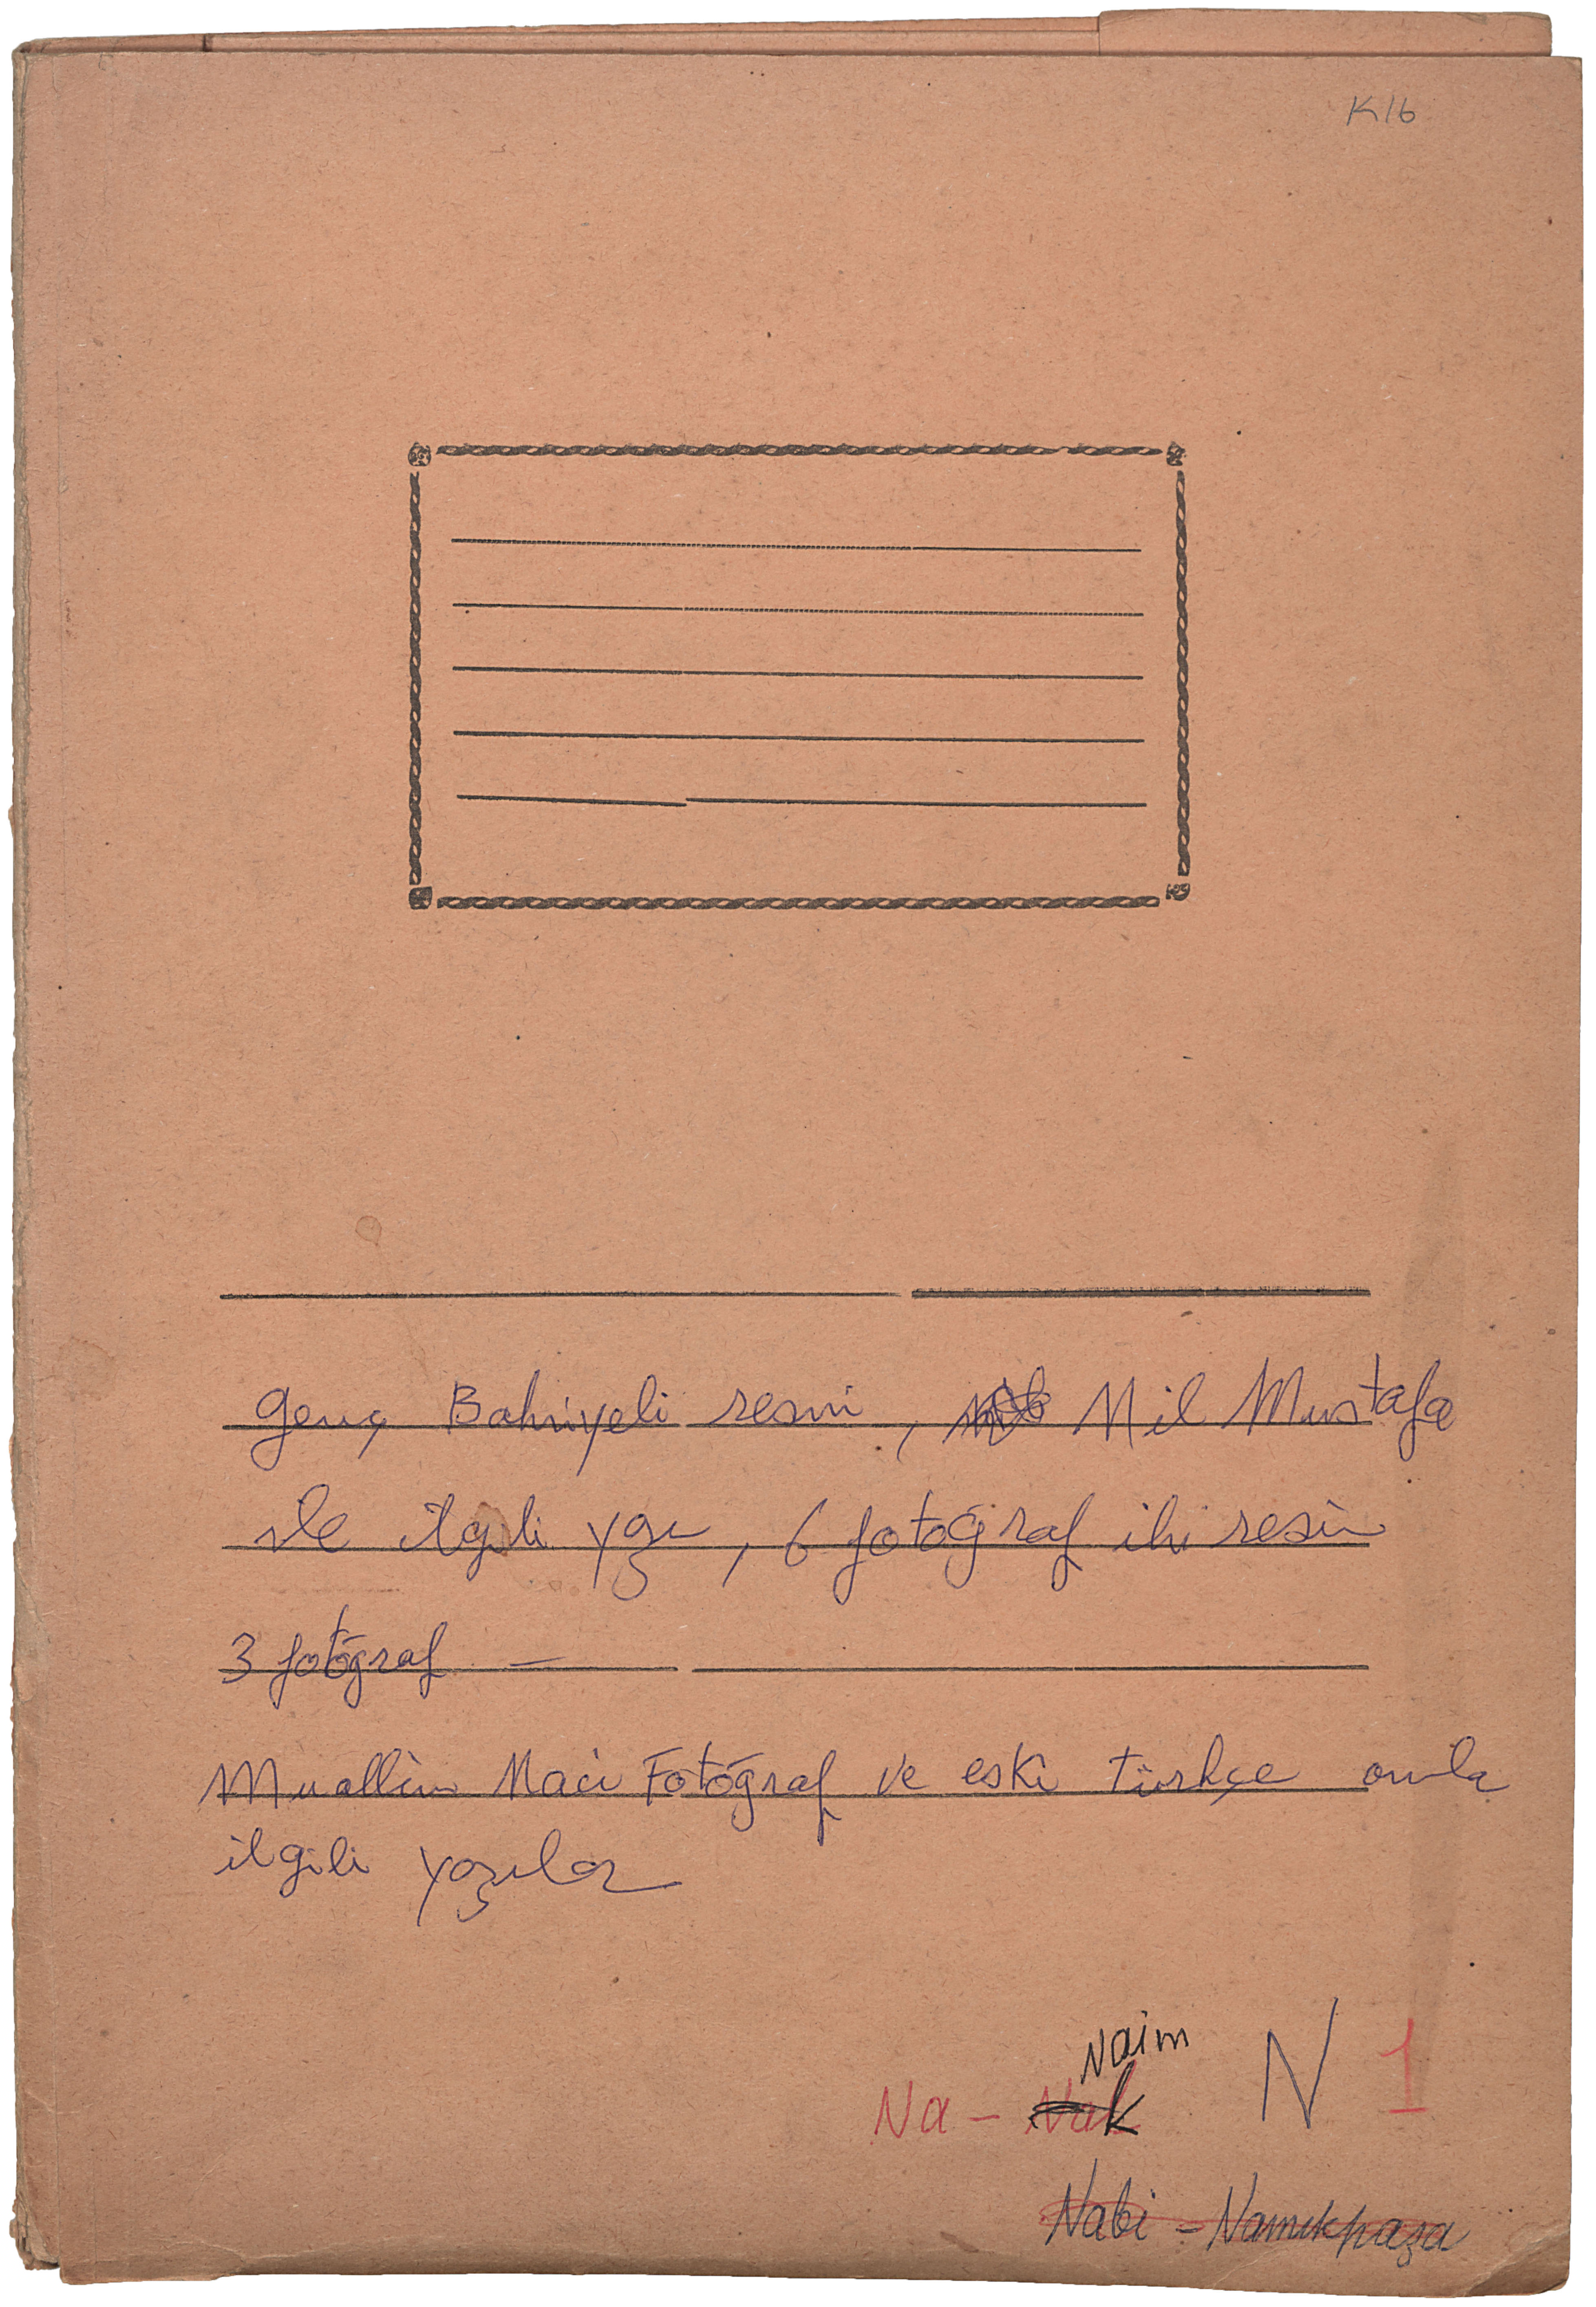 K16
Genç Bahriyeli resmi, Nil Mustafa
ile ilgili yazı, 6 fotoğraf iki resim
3 fotoğraf —
Muallim Naci Fotoğraf ve eski türkçe onula
ilgili yazılar
Naim
Na - Nak N 1
Nabi - Namıkpaşa